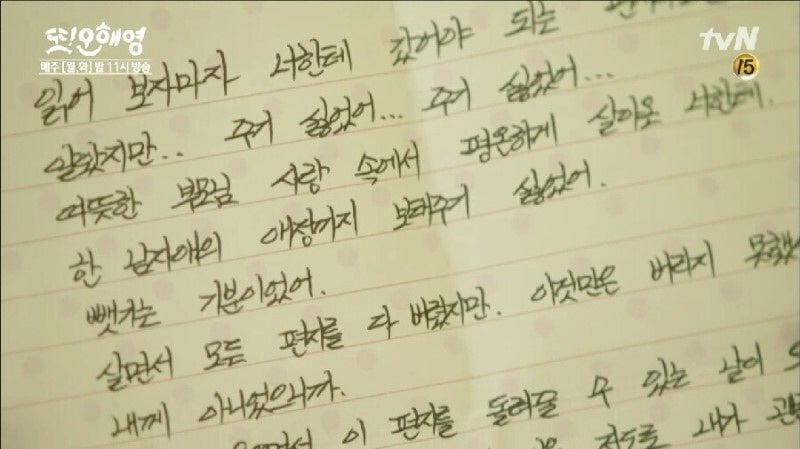 또!오해영
매주 [월,화] 밤 11시 방송
tvN
15
읽어 보자마자 너한테 갔어야 되는
알았지만.. 주기 싫었어... 주기 싫었어...
따뜻한 부모님 사랑 속에서 평온하게 살아온 너한테.
한 남자애의 애정까지 보태주기 싫었어.
뺏기는 기분이었어.
살면서 모든 편지를 다 버렸지만. 이것만은 버리지 못했
내께 아니었으니까.
이 편지를 돌려줄 수 있는 날이
정도로 내가